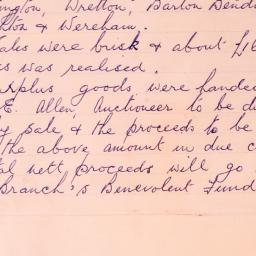 ington, Wretton, Barton Bendi
& Wereham.
ales were brisk & about £16
s was realised.
plus goods were handed
E. Allen, Auctioneer to be di
y sale, & the proceeds to be
the above amount in due c
al nett proceeds will go
Branch's Benevolent Fund